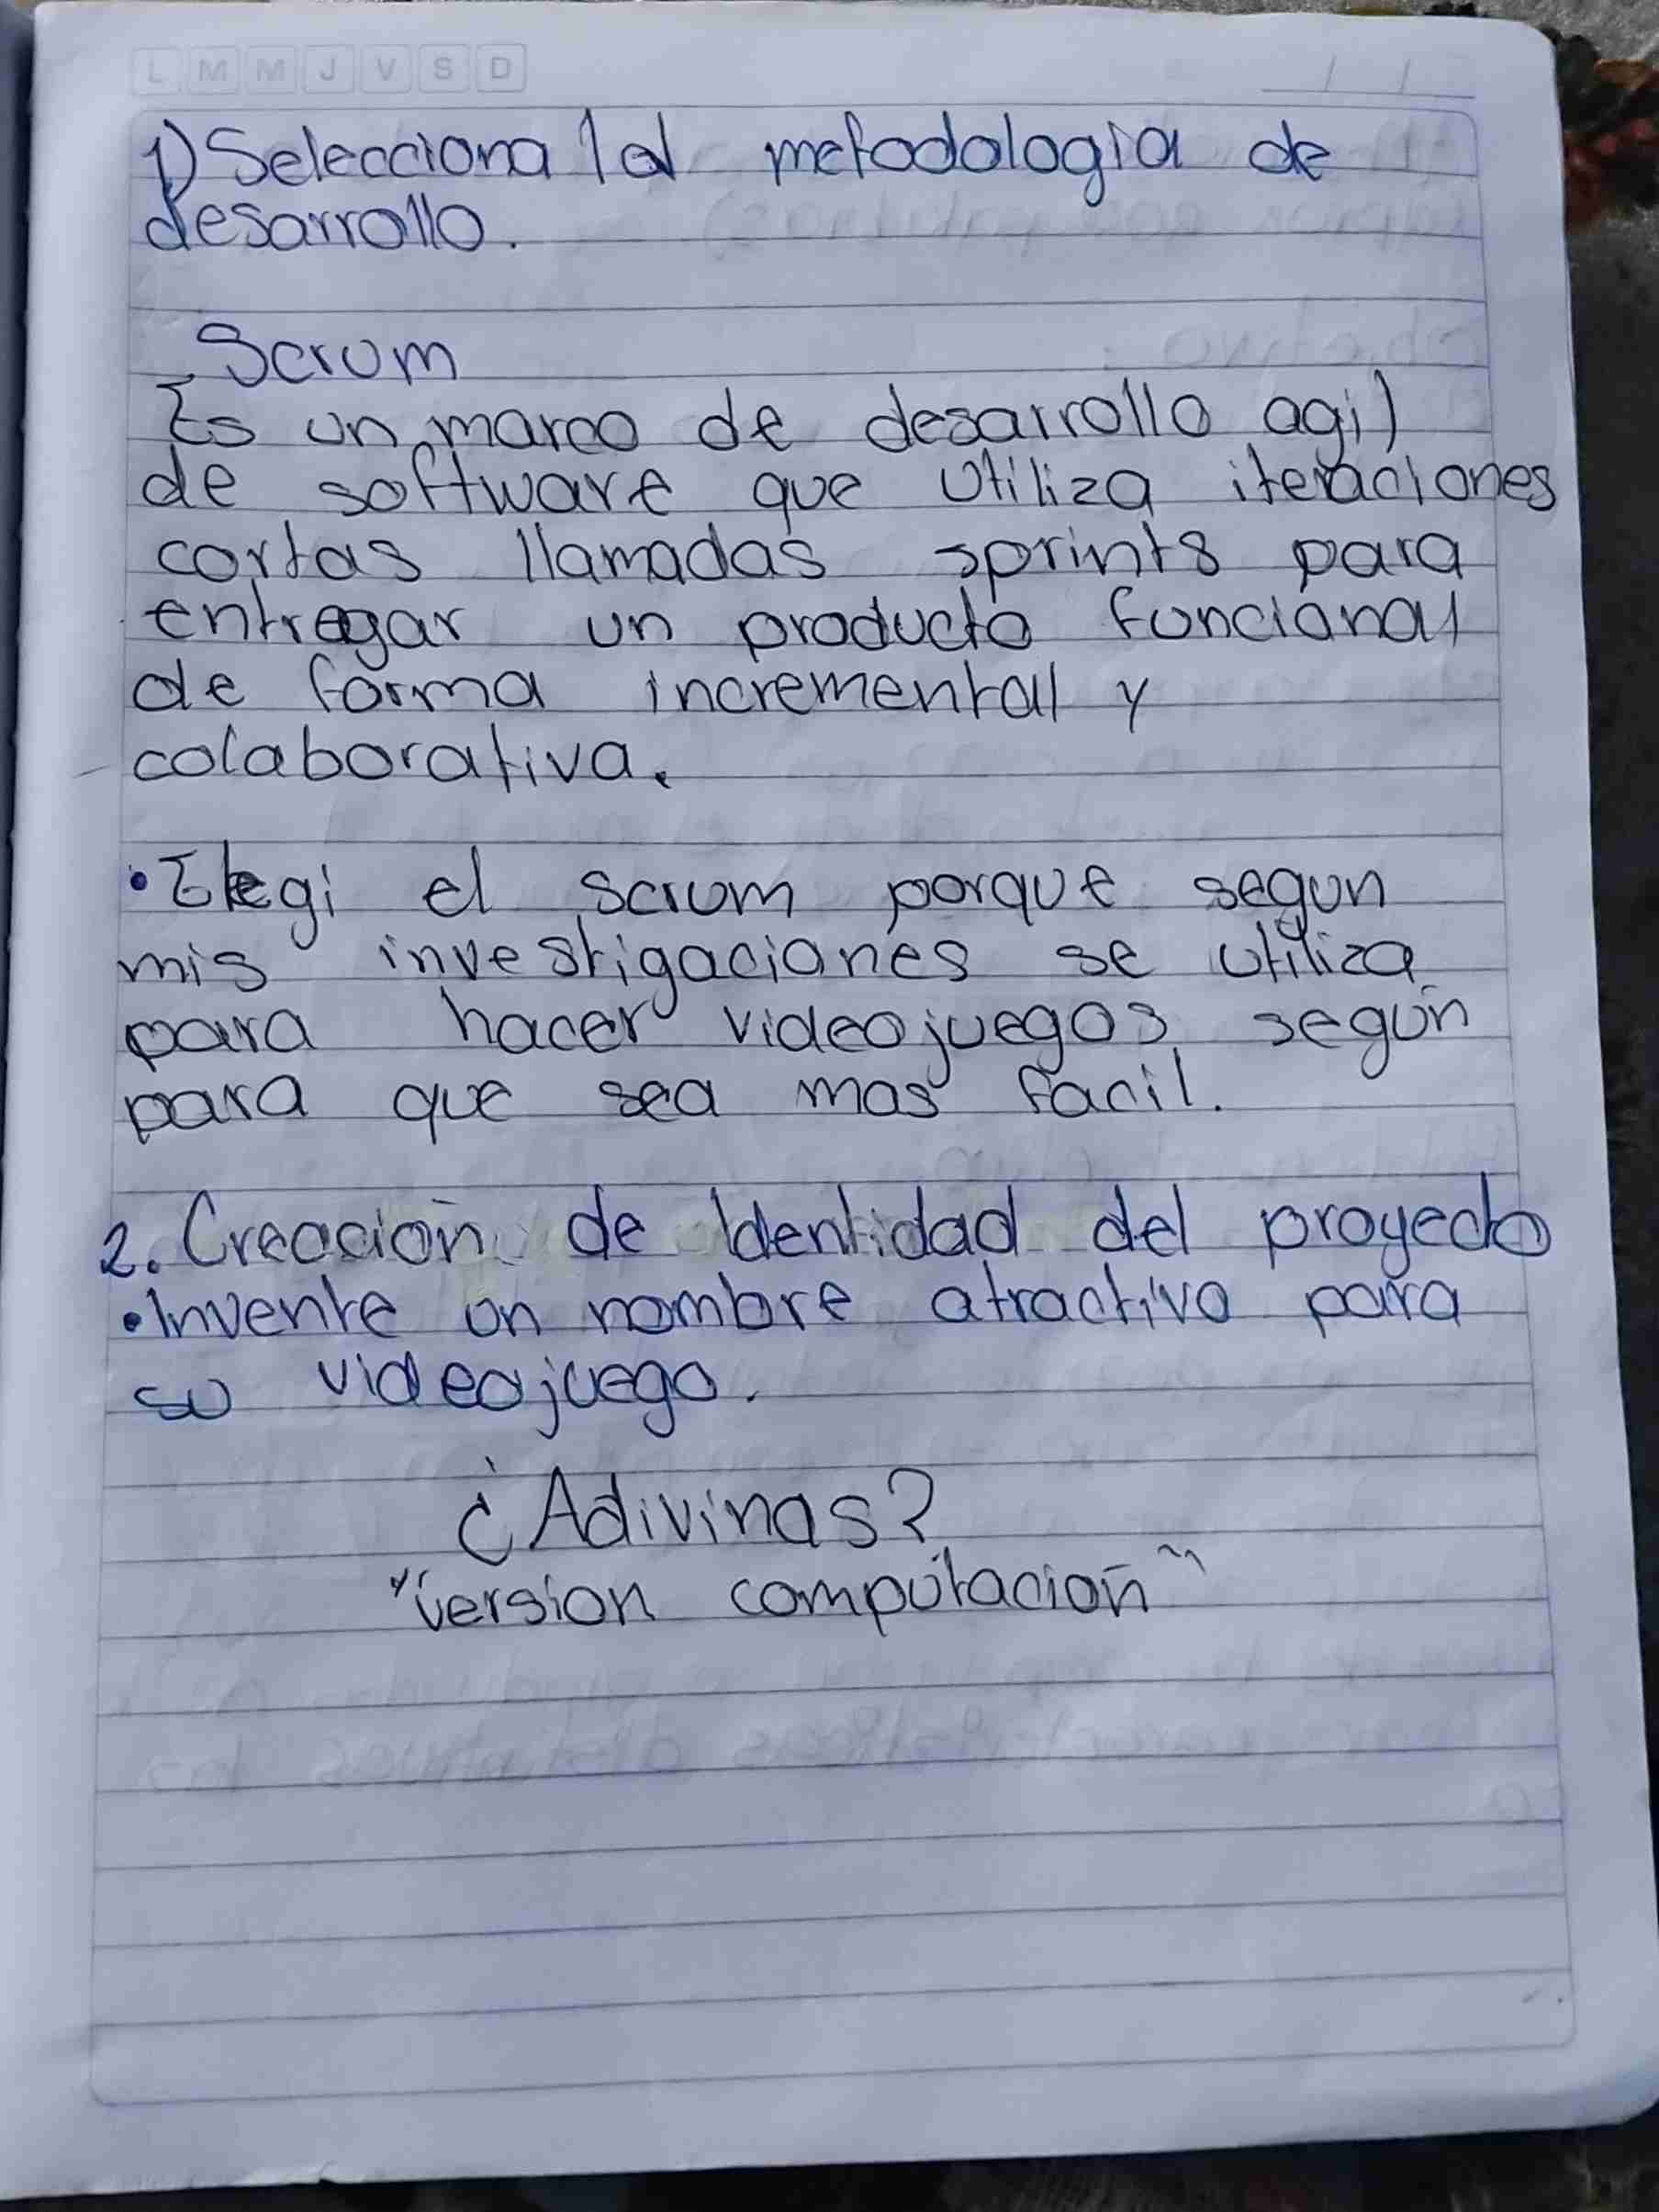 L M M J V S D
1) Selecciona la metodologia de
desarrollo.
Scrum
Es un marco de desarrollo agil
de software que utiliza iteraciones
cortas llamadas sprints para
entregar un producto funcional
de forma incremental y
colaborativa.
• Elegi el scrum porque segun
mis investigaciones se utiliza
para hacer videojuegos según
para que sea mas facil.
2. Creación de Identidad del proyecto
• Invente un nombre atractivo para
su videojuego.
¿Adivinas?
"version computación"